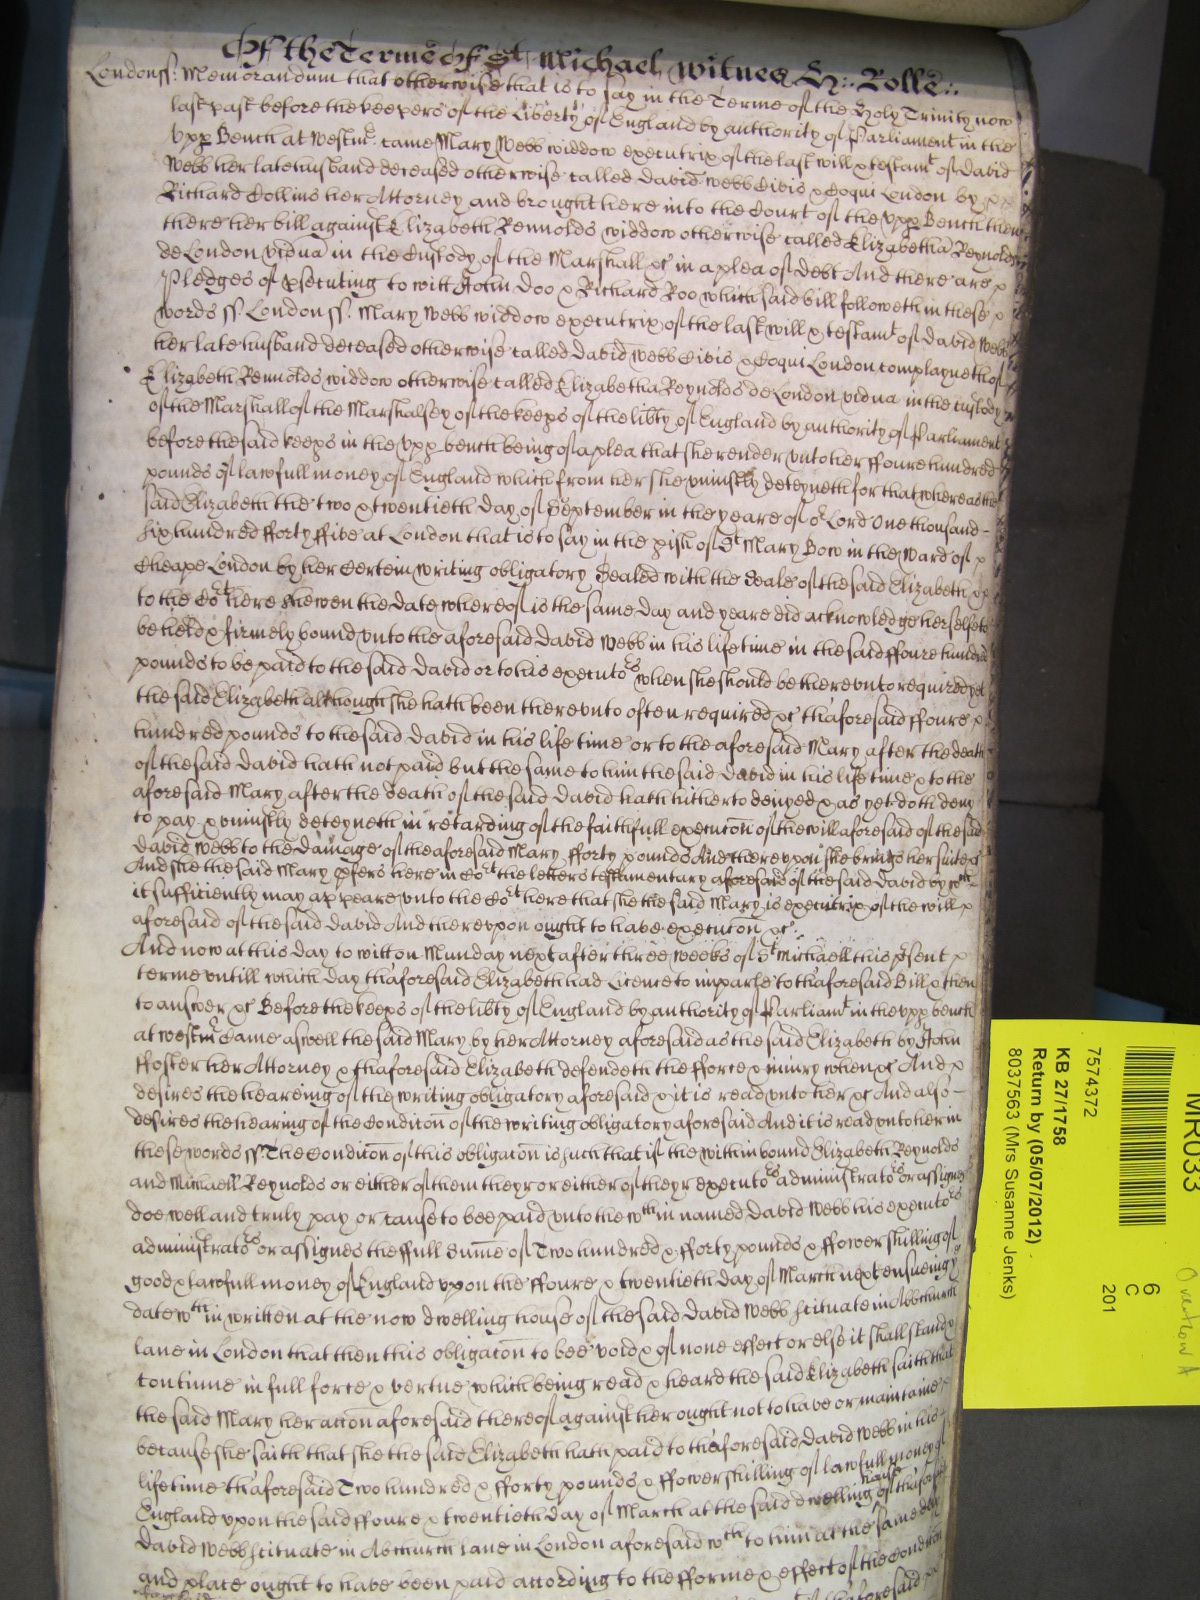 Of the Terme Of St Michael witnes H: Rolle:
London ss: Memorandum that otherwise that is to say in the Terme of the Holy Trinity now
last past before the keepers of the Liberty of England by authority of Parliament in the
vpp Bench at Westmr. came Mary Webb widdow executrix of the last will & testamt of David
Webb her late husband deceased otherwise called David Webb Civis & Coqui London by
Richard Collins her Attorney and brought here into the Court of the vpp Bench then
there her bill against Elizabeth Rennolds widdow otherwise called Elizabetha Reynolds
de London vidua in the Custody of the Marshall &c in a plea of debt And there are
Pledges of psecuting to witt John Doo & Richard Roo which said bill followeth in these
words ss London ss. Mary Webb widdow executrix of the last will & testamt of David Webb
her late husband deceased otherwise called David Webb Civis & Coqui London complayneth of
Elizabeth Rennolds widdow otherwise called Elizabetha Reynolds de London vidua in the custody
of the Marshall of the Marshalsey of the keeps of the libty of England by authority of Parliament
before the said keeps in the vpp bench being of a plea that she render vnto her ffoure hundred
pounds of lawfull money of England which from her she vniustly deteyneth for that whereas the
said Elizabeth the two & twentieth day of September in the yeare of or Lord One thousand
six hundred fforty ffive at London that is to say in the pish of St Mary Bow in the Ward of
Cheape London by her Certein writing obligatory Sealed with the Seale of the said Elizabeth
to the Cort here shewen the Date whereof is the same day and yeare did acknowledge herselfe to
be held & firmely bound vnto the aforesaid David Webb in his life time in the said ffoure hundred
pounds to be paid to the said David or to his executors when she should be therevnto required yet
the said Elizabeth although she hath been therevnto often required &c thaforesaid ffoure
hundred pounds to the said David in his life time or to the aforesaid Mary after the death
of the said David hath not paid but the same to him the said David in his life time & to the
aforesaid Mary after the death of the said David hath hitherto denyed & as yet doth deny
to pay & vniustly deteyneth in retarding of the faithfull execucon of the will aforesaid of the said
David Webb to the damage of the aforesaid Mary fforty pounds And therevpon she brings her suite &c
And she the said Mary pfers here in Cort the letters testamentary aforesaid of the said David by wch
it sufficiently may appeare vnto the Cort here that she the said Mary is executrix of the will
aforesaid of the said David And therevpon ought to have execucon &c.
And now at this day to witt on Munday next after three weeks of St Michaell this psent
terme vntill which day thaforesaid Elizabeth had Licence to imparle to thaforesaid Bill & then
to answer &c Before the keeps of the libty of England by authority of Parliamt in the vpp bench
at Westmr Came aswell the said Mary by her Attorney aforesaid as the said Elizabeth by John
ffoster her Attorney & thaforesaid Elizabeth defendeth the fforce & iniury when &c And
desires the heareing of the writing obligatory aforesaid & it is read vnto her &c And also
desires the hearing of the Condicon of the writing obligatory aforesaid And it is read vnto her in
these words ss The Condicon of this obligacon is such that if the within bound Elizabeth Reynolds
and Michaell Reynolds or either of them theyr or either of theyr executors administrators or assignes
doe well and truly pay or cause to bee paid vnto the wthin named David Webb his executors
administrators or assignes the ffull Summe of Two hundred & fforty pounds & ffower shilling of
good & lawfull money of England vpon the ffoure & twentieth day of March next ensueing ye
date wthin written at the now dwelling house of the said David Webb scituate in Abchurch
lane in London that then this obligacon to bee void & of none effect or else it shall stand &
continue in full force & vertue which being read & heard the said Elizabeth saith that
the said Mary her accon aforesaid thereof against her ought not to have or maintaine
because she saith that she the said Elizabeth hath paid to thaforesaid David Webb in his
lifetime thaforesaid Two hundred & fforty pounds & ffower shilling of lawfull money of
England vpon the said ffoure & twentieth day of March at the said dwelling house of thaforesd
David Webb scituate in Abchurch Lane in London aforesaid wch to him at the same day
and place ought to have been paid according to the fforme & effect of the Condicon
thaforesaid
7574372
KB 27/1758
Return by (05/07/2012)
8037563 (Mrs Susanne Jenks)
MR033
6
C
201
Overflow A